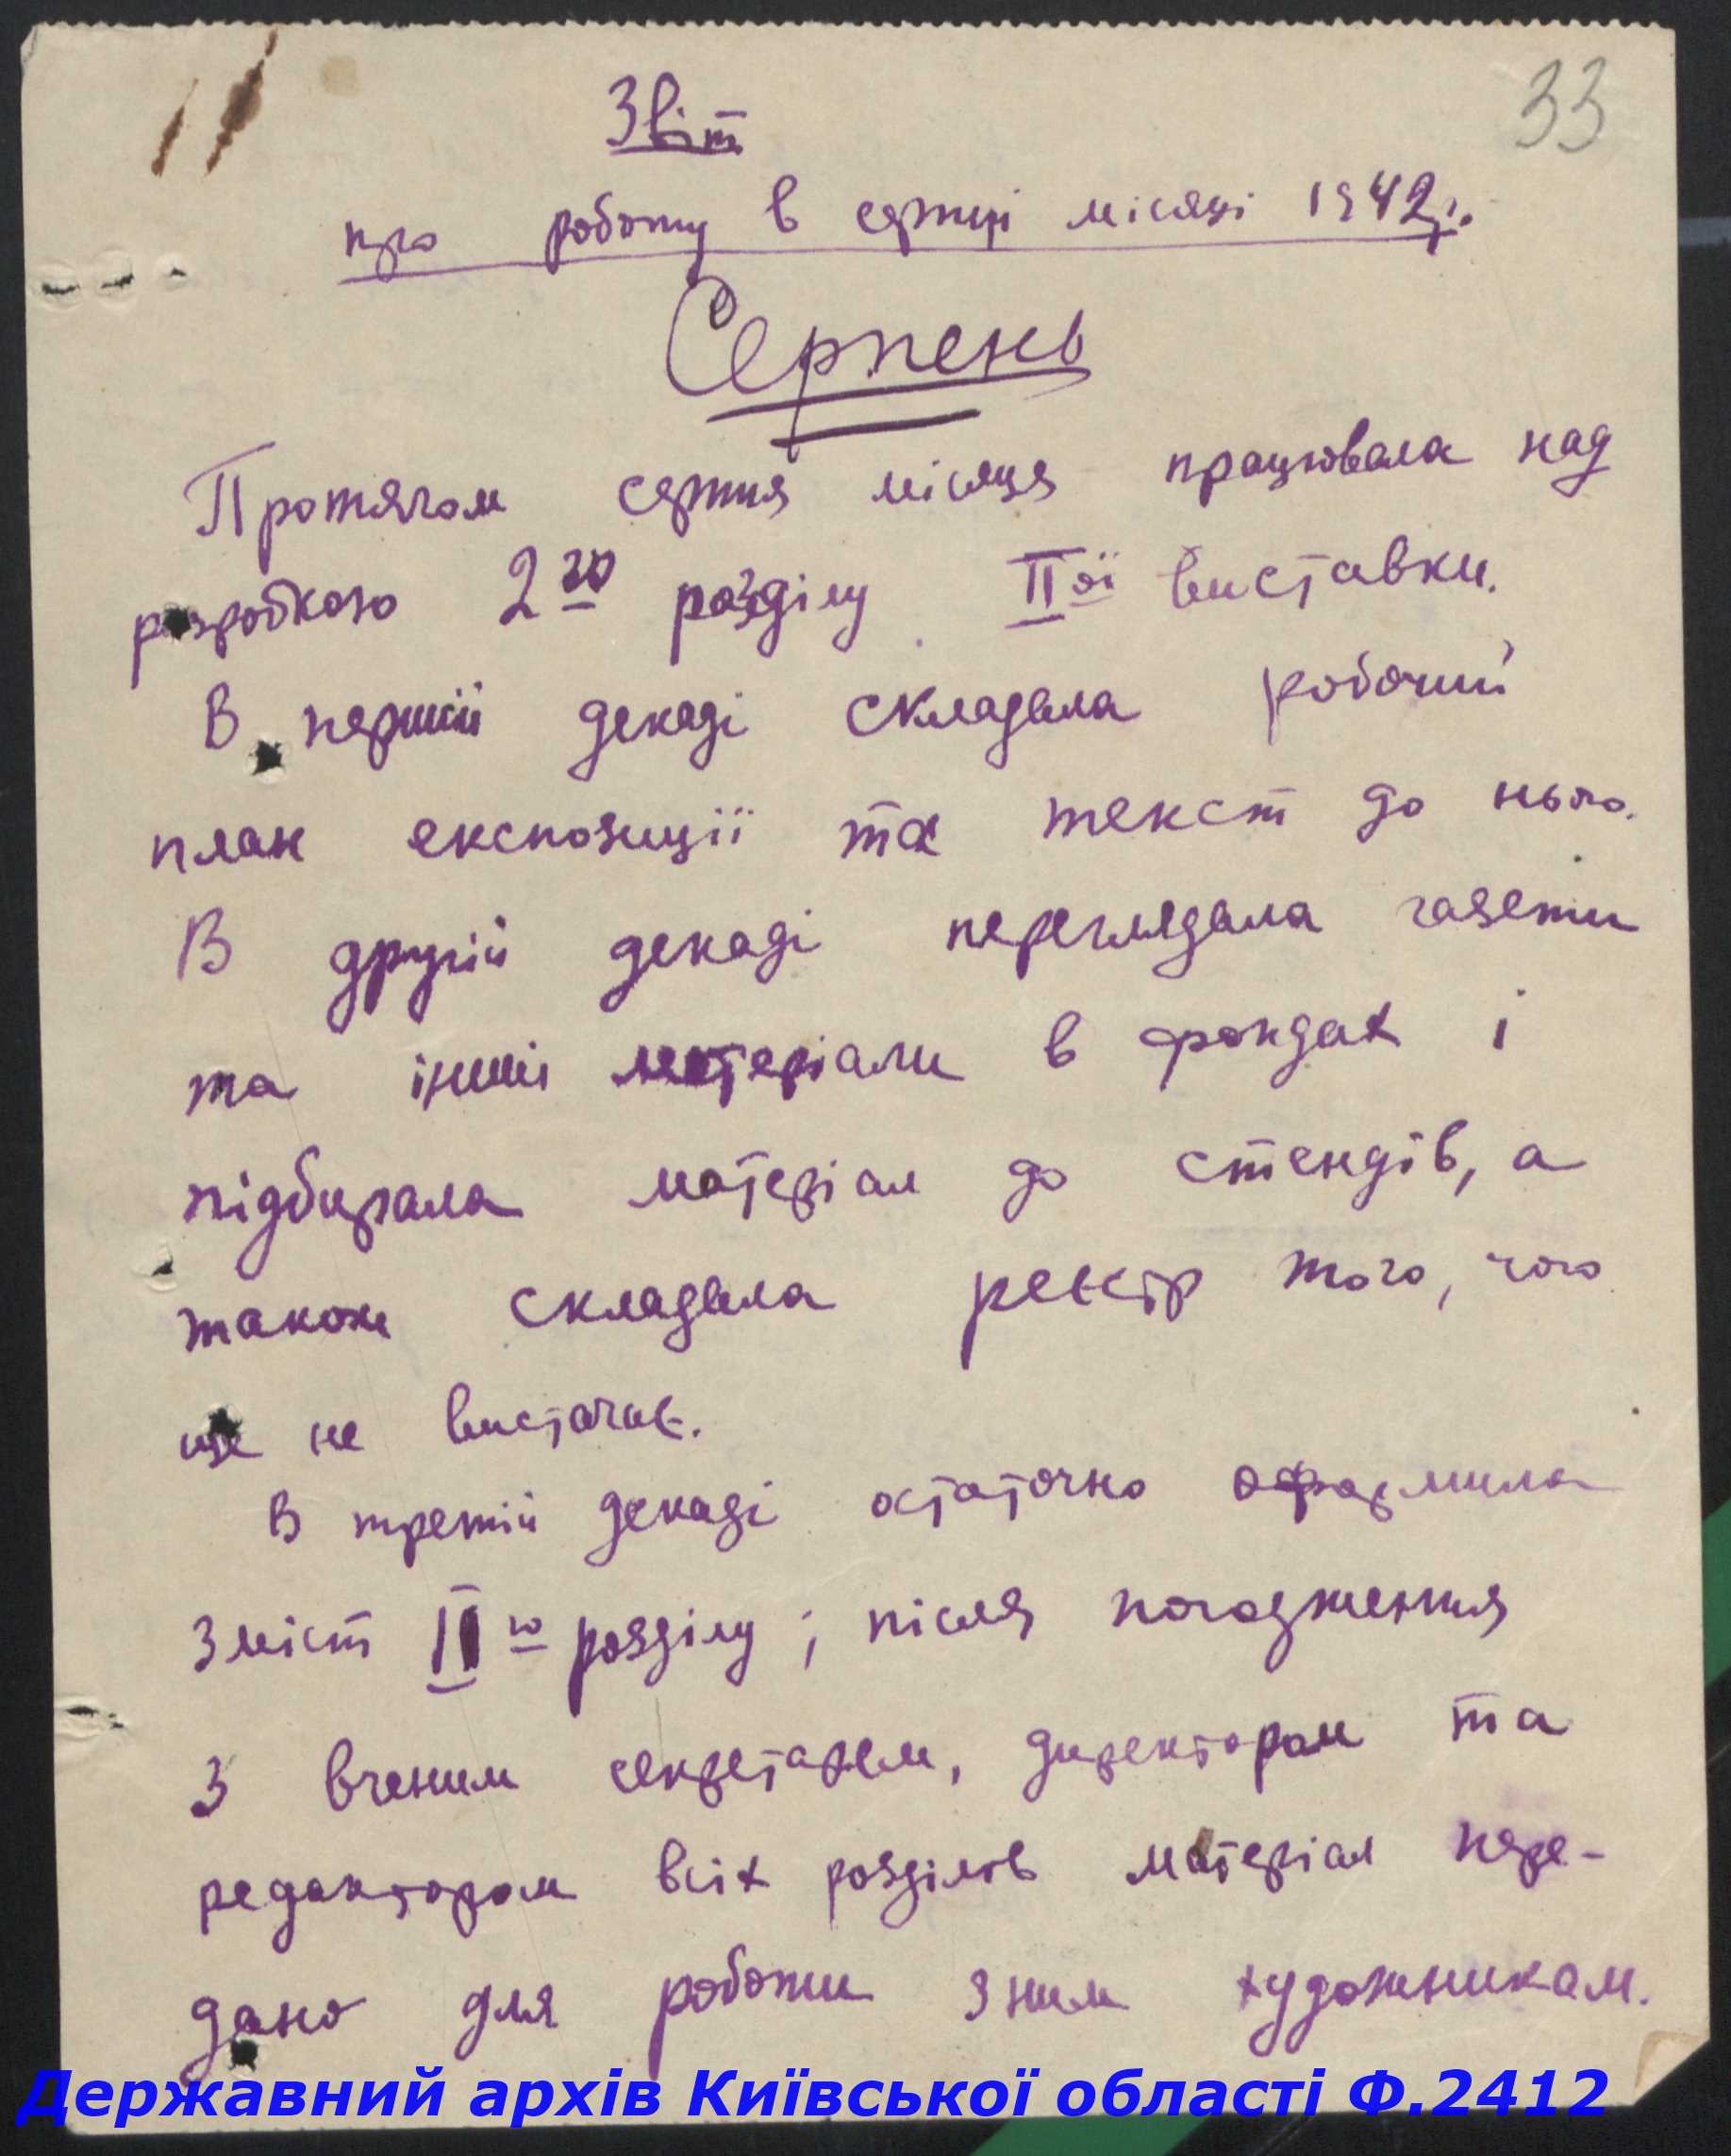 33
Звіт
про роботу в серпні місяці 1942 р.
Серпень
Протягом серпня місяця працювала над
розробкою 2го розділу ІІої виставки.
В першій декаді складала робочий
план експозиції та текст до нього.
В другій декаді переглядала газети
та інші матеріали в фондах і
підбирала матеріал до стендів, а
також складала реєстр того, чого
ще не вистачає.
В третій декаді остаточно оформила
зміст ІІго розділу; після погодження
з вченим секретарем, директором та
редактором всіх розділів матеріал пере-
дано для роботи з ним художникам.
Державний архів Київської області Ф.2412